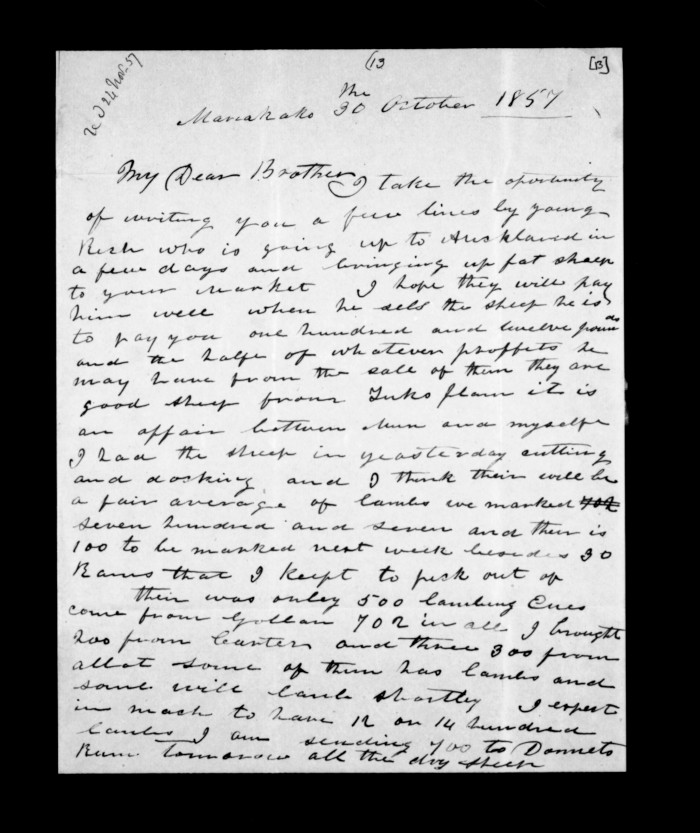 (13
[13]
24 Nov. 57
the
30 October 1857
My Dear Brother I take the oportunity
of writing you a few lines by young
Rich who is going up to Aucklaned in
a few days and bringing up fat sheep
to your market I hope they will pay
him well when he sels the sheep he is
to pay you one hundred and twelve pounds
and the halfe of whatever proffits he
may have from the sale of them they are
good sheep from it is
an affair between and myselfe
I had the sheep in yeasterday cutting
and docking and I think their will be
a fair average of lambs we marked 702
seven hundred and seven and their is
100 to be marked next week besides 30
Rams that I keept to pick out of
their was onley 500 lambing Ewes
come from Gollan 702 in all I brought
200 from Carter and three 300 from
allot some of them has lambs and
some will lamb shortley I expect
in mach to have 12 or 14 hundred
lambs I am sending 700 to
tomorrow all the dry sheep